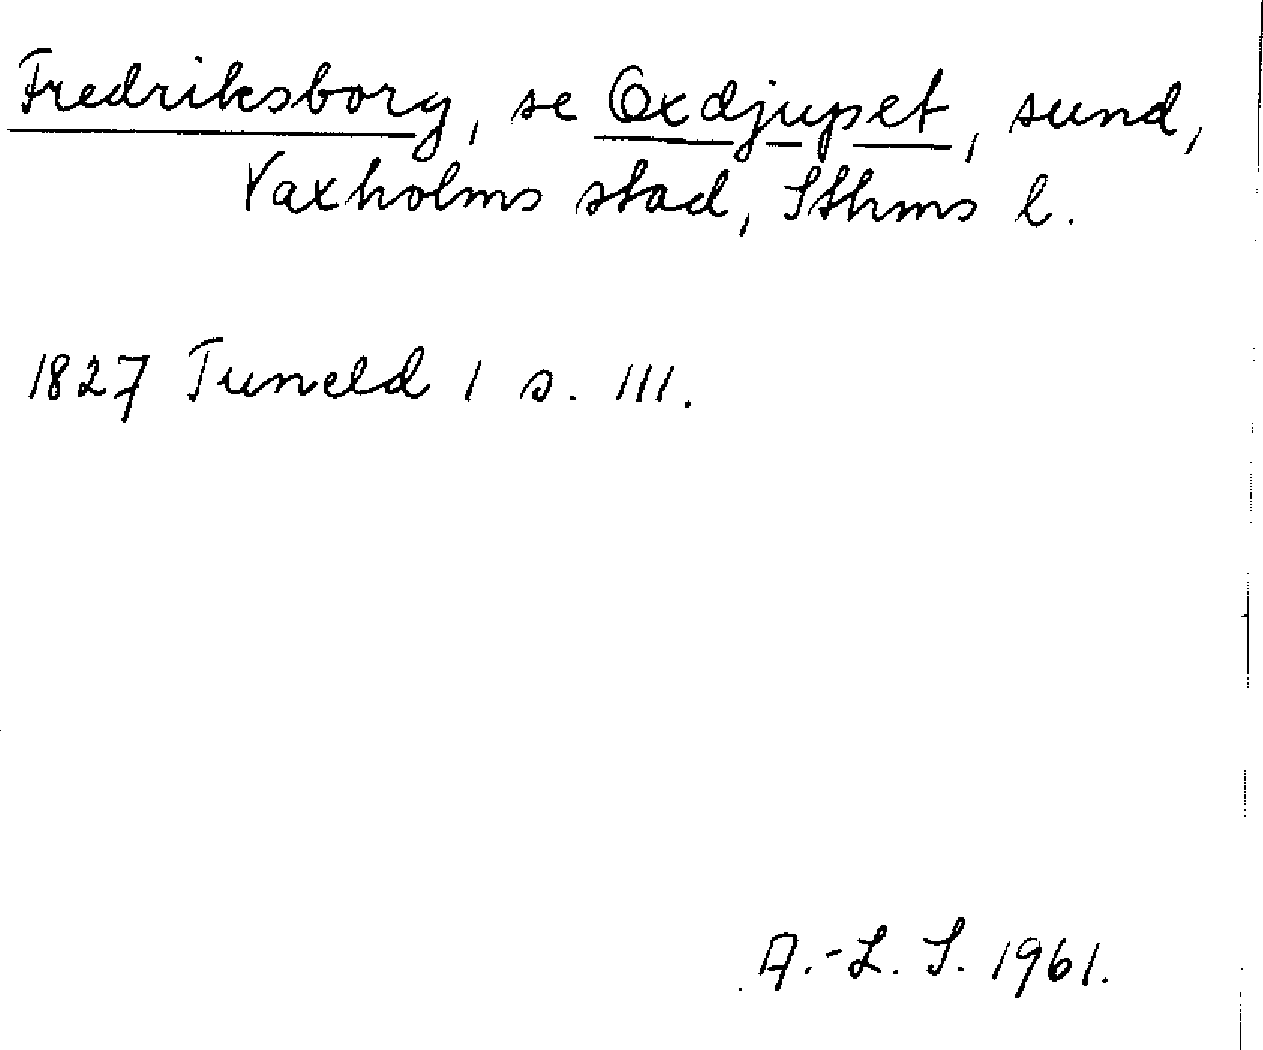 Fredriksborg, se Oxdjupet, sund,
Vaxholms stad, Sthms l.
1827 Tuneld 1 s. 111.
A.-L. S. 1961.